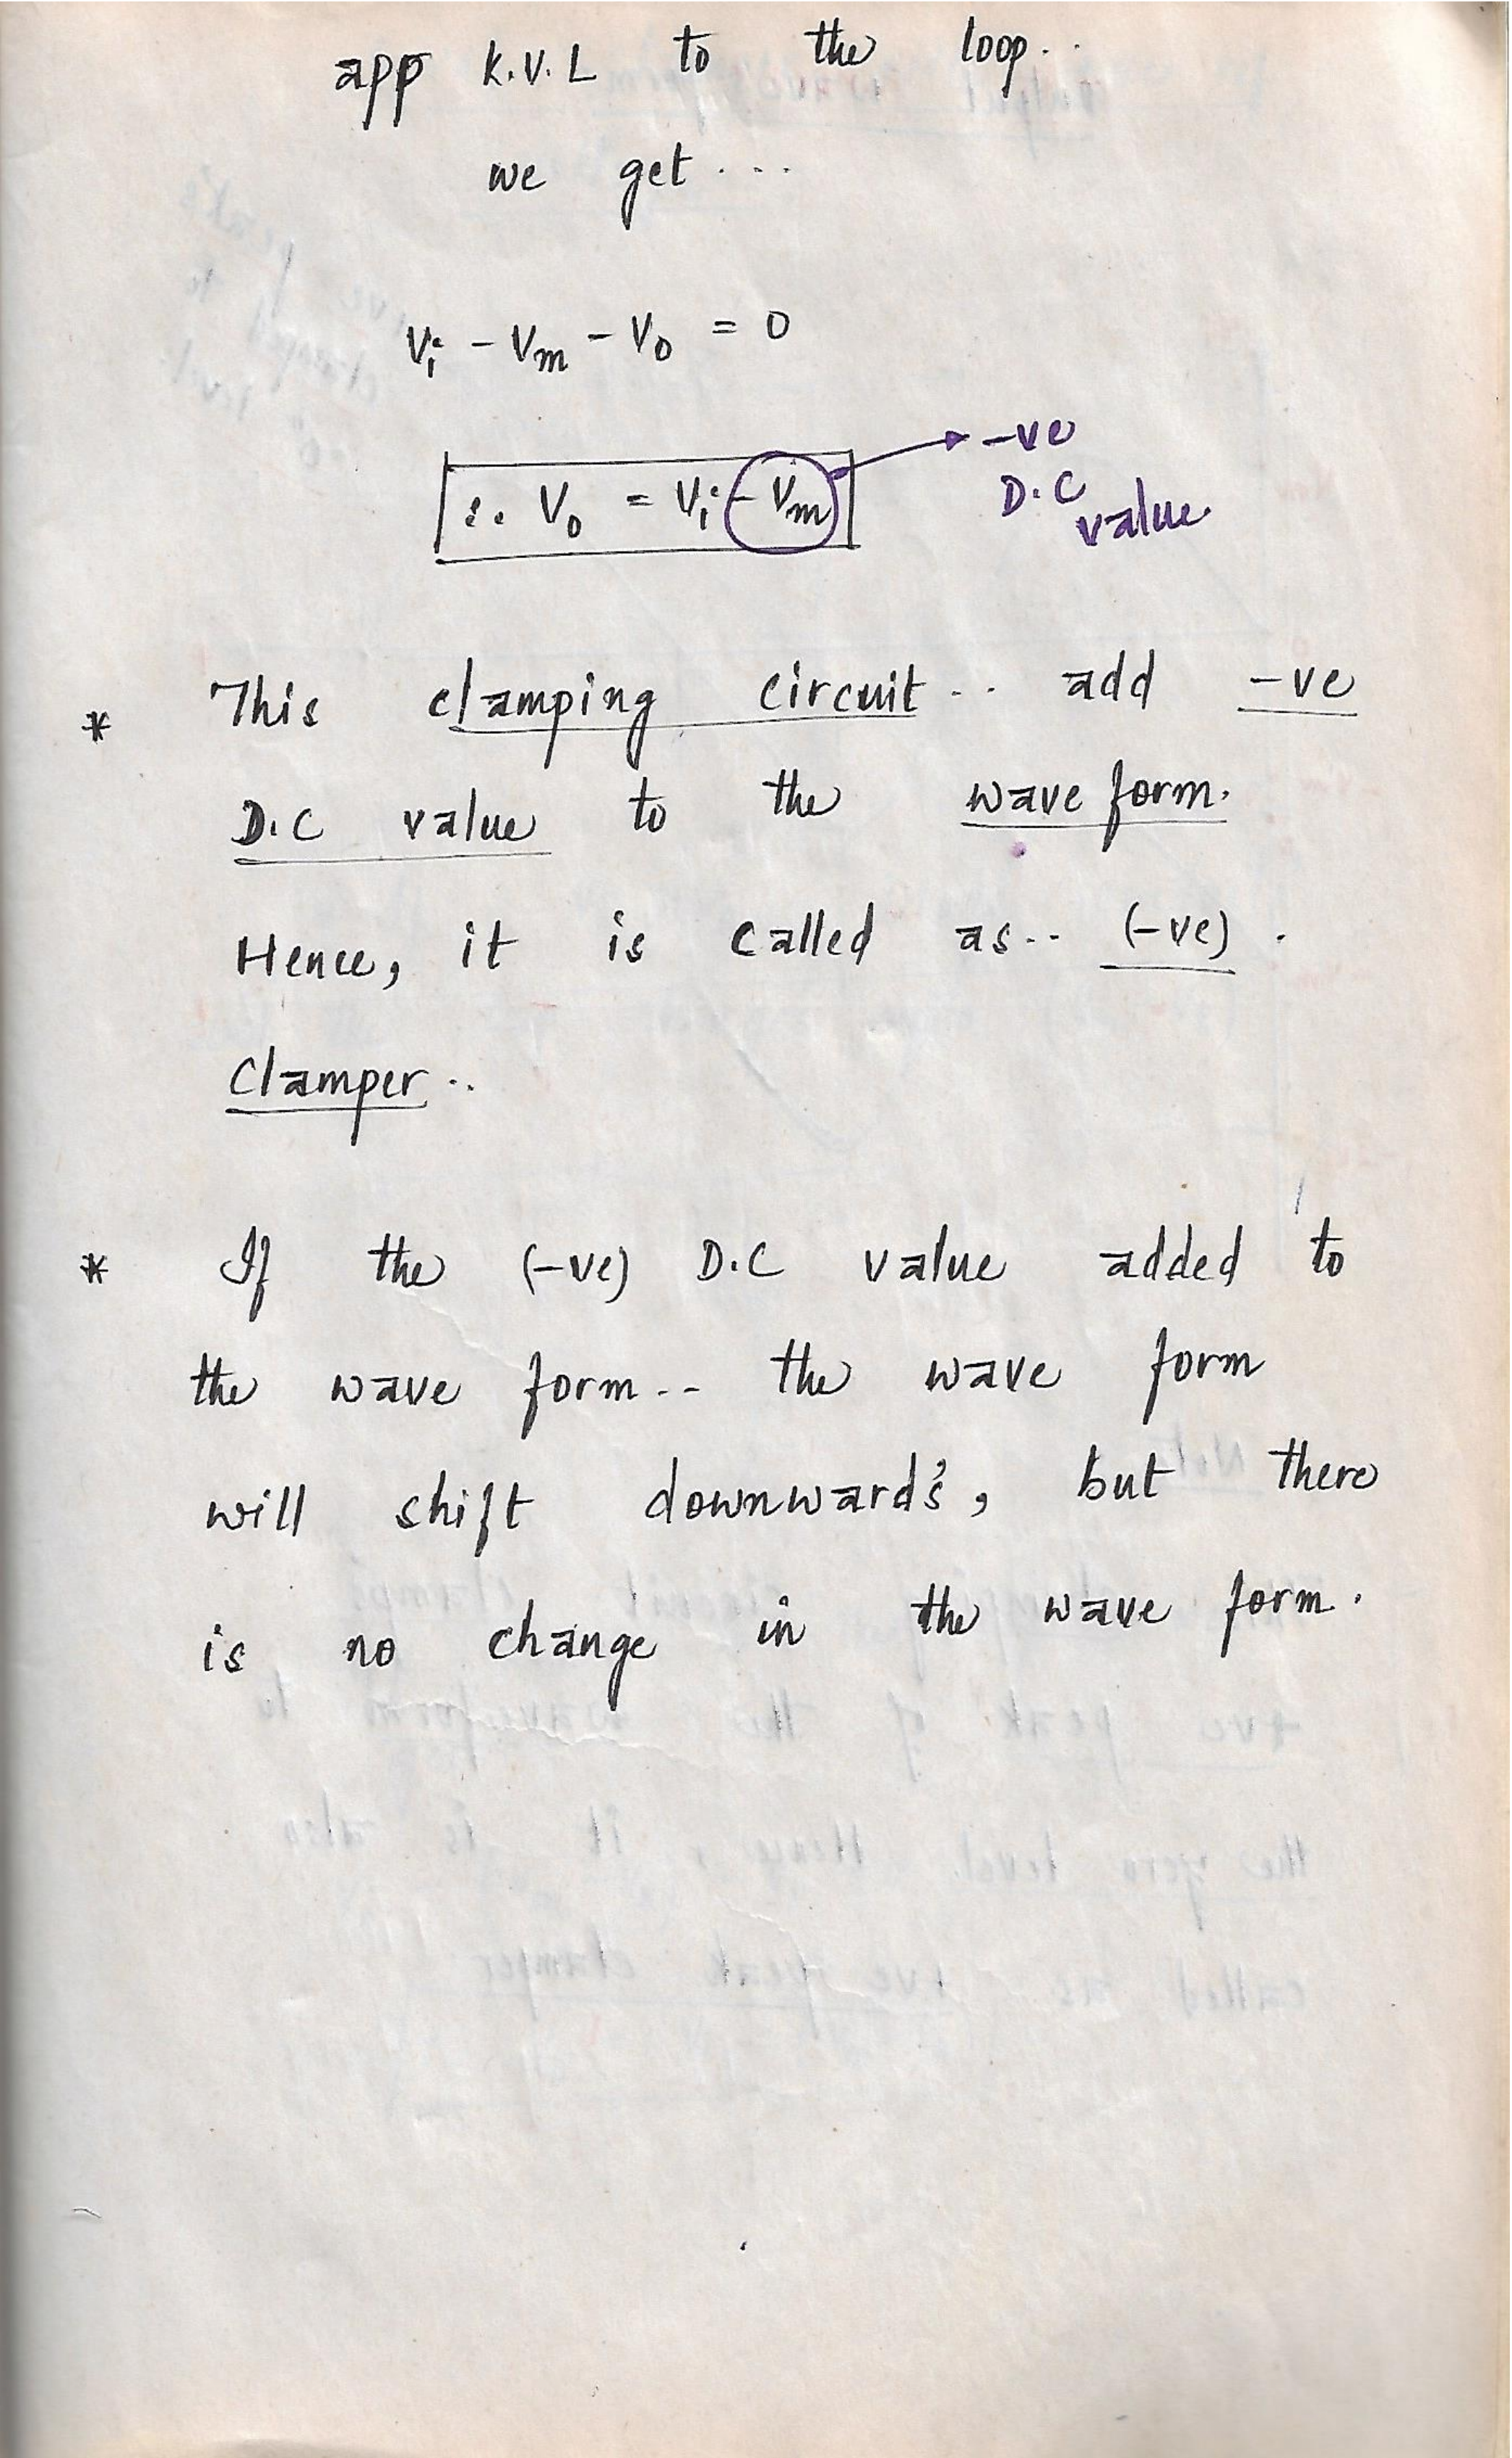 app K.V.L to the loop..
we get ....
Vi - Vm - Vo = 0
∴ Vo = Vi - Vm
-ve
D.C
value
* This clamping circuit.. add -ve
D.C value to the wave form.
Hence, it is called as.. (-ve).
Clamper..
* If the (-ve) D.C value added to
the wave form.. the wave form
will shift downward's, but there
is no change in the wave form.